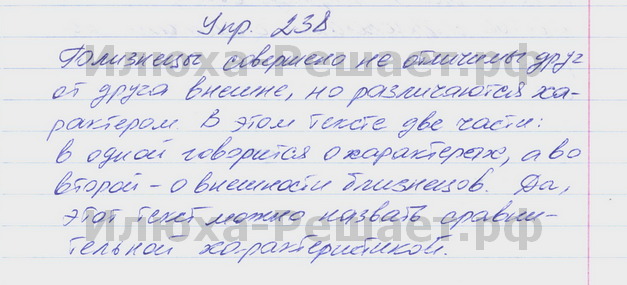 Упр. 238.
Близнецы совершено не отличимы друг
от друга внешне, но различаются ха-
рактером. В этом тексте две части:
в одной говорится о характерах, а во
второй – о внешности близнецов. Да,
этот текст можно назвать сравни-
тельной характеристикой.
Илюха-Решает.рф
Илюха-Решает.рф